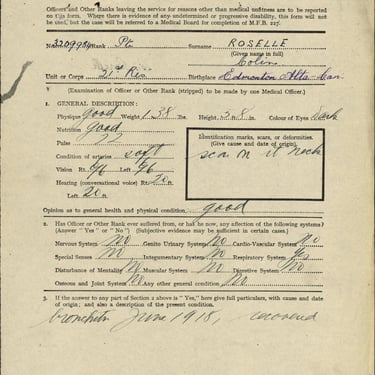 Officers and Other Ranks leaving the service for reasons other than medical unfitness are to be reported
on this form. Where there is evidence of any undetermined or progressive disability, this form will not
be used, but the case will be referred to a Medical Board for completion of M.F.B. 227.
Pte Surname ROSELLE
(Given name in full)
Colin
Unit or Corps 21st Res Birthplace Edmonton Alta. Can.
(Examination of Officer or Other Rank (stripped) to be made by one Medical Officer.)
1. GENERAL DESCRIPTION:
Physique good Weight 138 lbs. Height ft. in. Colour of Eyes Dark
Nutrition good
Pulse
Condition of arteries soft
Vision Rt. 6/6 Left 6/6
Hearing (conversational voice) Rt. 20 ft.
Left 20 ft.
Identification marks, scars, or deformities.
(Give cause and date of origin).
scar on neck
Opinion as to general health and physical condition good
2. Has Officer or Other Rank ever suffered from, or has he now, any affection of the following systems?
(Answer "Yes" or "No") (Subjective evidence may be sufficient in certain cases.)
Nervous System No Genito Urinary System No Cardio-Vascular System No
Special Senses No Integumentary System No Respiratory System Yes
Disturbance of Mentality No Muscular System No Digestive System No
Osseous and Joint System No Any other general condition No
3. If the answer to any part of Section 2 above is "Yes," here give full particulars, with cause and date
of origin; and also a description of the present condition.
bronchitis June 1918, recovered